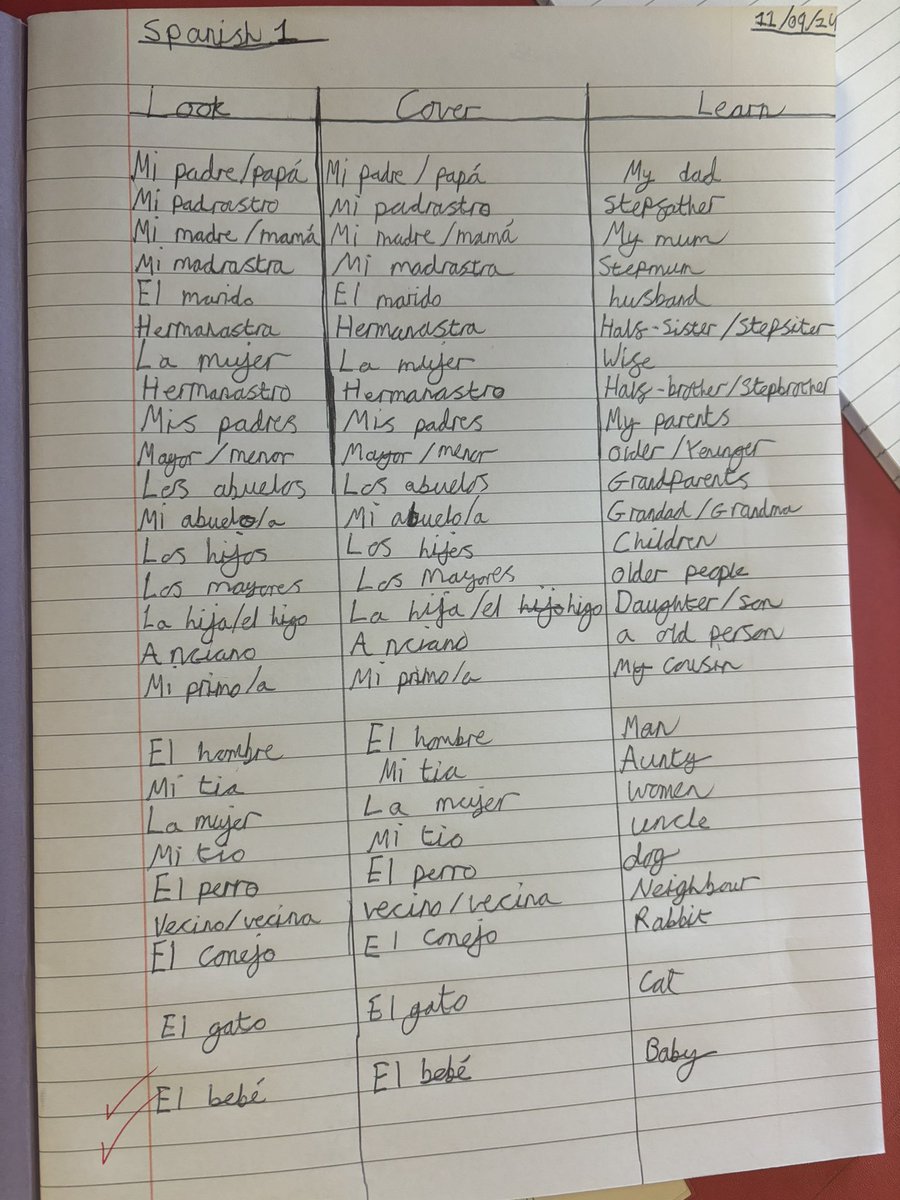 Spanish 1 11/09/24
Look Cover Learn
Mi padre/papá Mi padre / papá My dad
Mi padrastro Mi padrastro Stepfather
Mi madre/mamá Mi madre/mamá My mum
Mi madrastra Mi madrastra Stepmum
El marido El marido husband
Hermanastra Hermanastra Half-sister/Stepsiter
La mujer La mujer Wife
Hermanastro Hermanastro Half-brother/Stepbrother
Mis padres Mis padres My parents
Mayor/menor Mayor/menor older/Younger
Los abuelos Los abuelos Grandparents
Mi abuelo/a Mi abuelo/a Grandad/Grandma
Los hijos Los hijos Children
Los mayores Los Mayores older people
La hija/el higo La hija/el hijo higo Daughter/son
Anciano Anciano a old person
Mi primo/a Mi primo/a My cousin
El hombre El hombre Man
Mi tia Mi tia Aunty
La mujer La mujer women
Mi tio Mi tio uncle
El perro El perro dog
Vecino/vecina vecino/vecina Neighbour
El conejo El conejo Rabbit
El gato El gato Cat
El bebé El bebé Baby